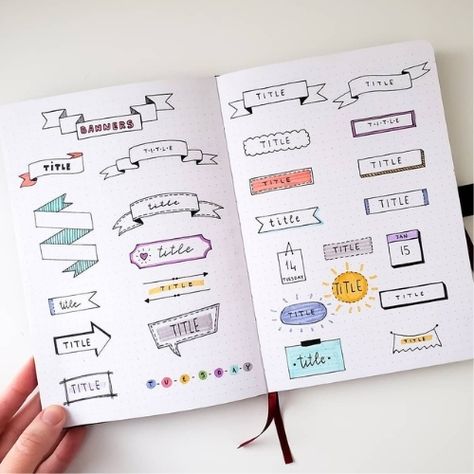 BANNERS
TITLE
T·I·T·L·E
title
title
title
TITLE
TITLE
TITLE
TITLE
T·U·E·S·D·A·Y
TITLE
TITLE
T·I·T·L·E
TITLE
TITLE
TITLE
TITLE
title
14
TUESDAY
TITLE
JAN
15
TITLE
TITLE
title
title
TITLE